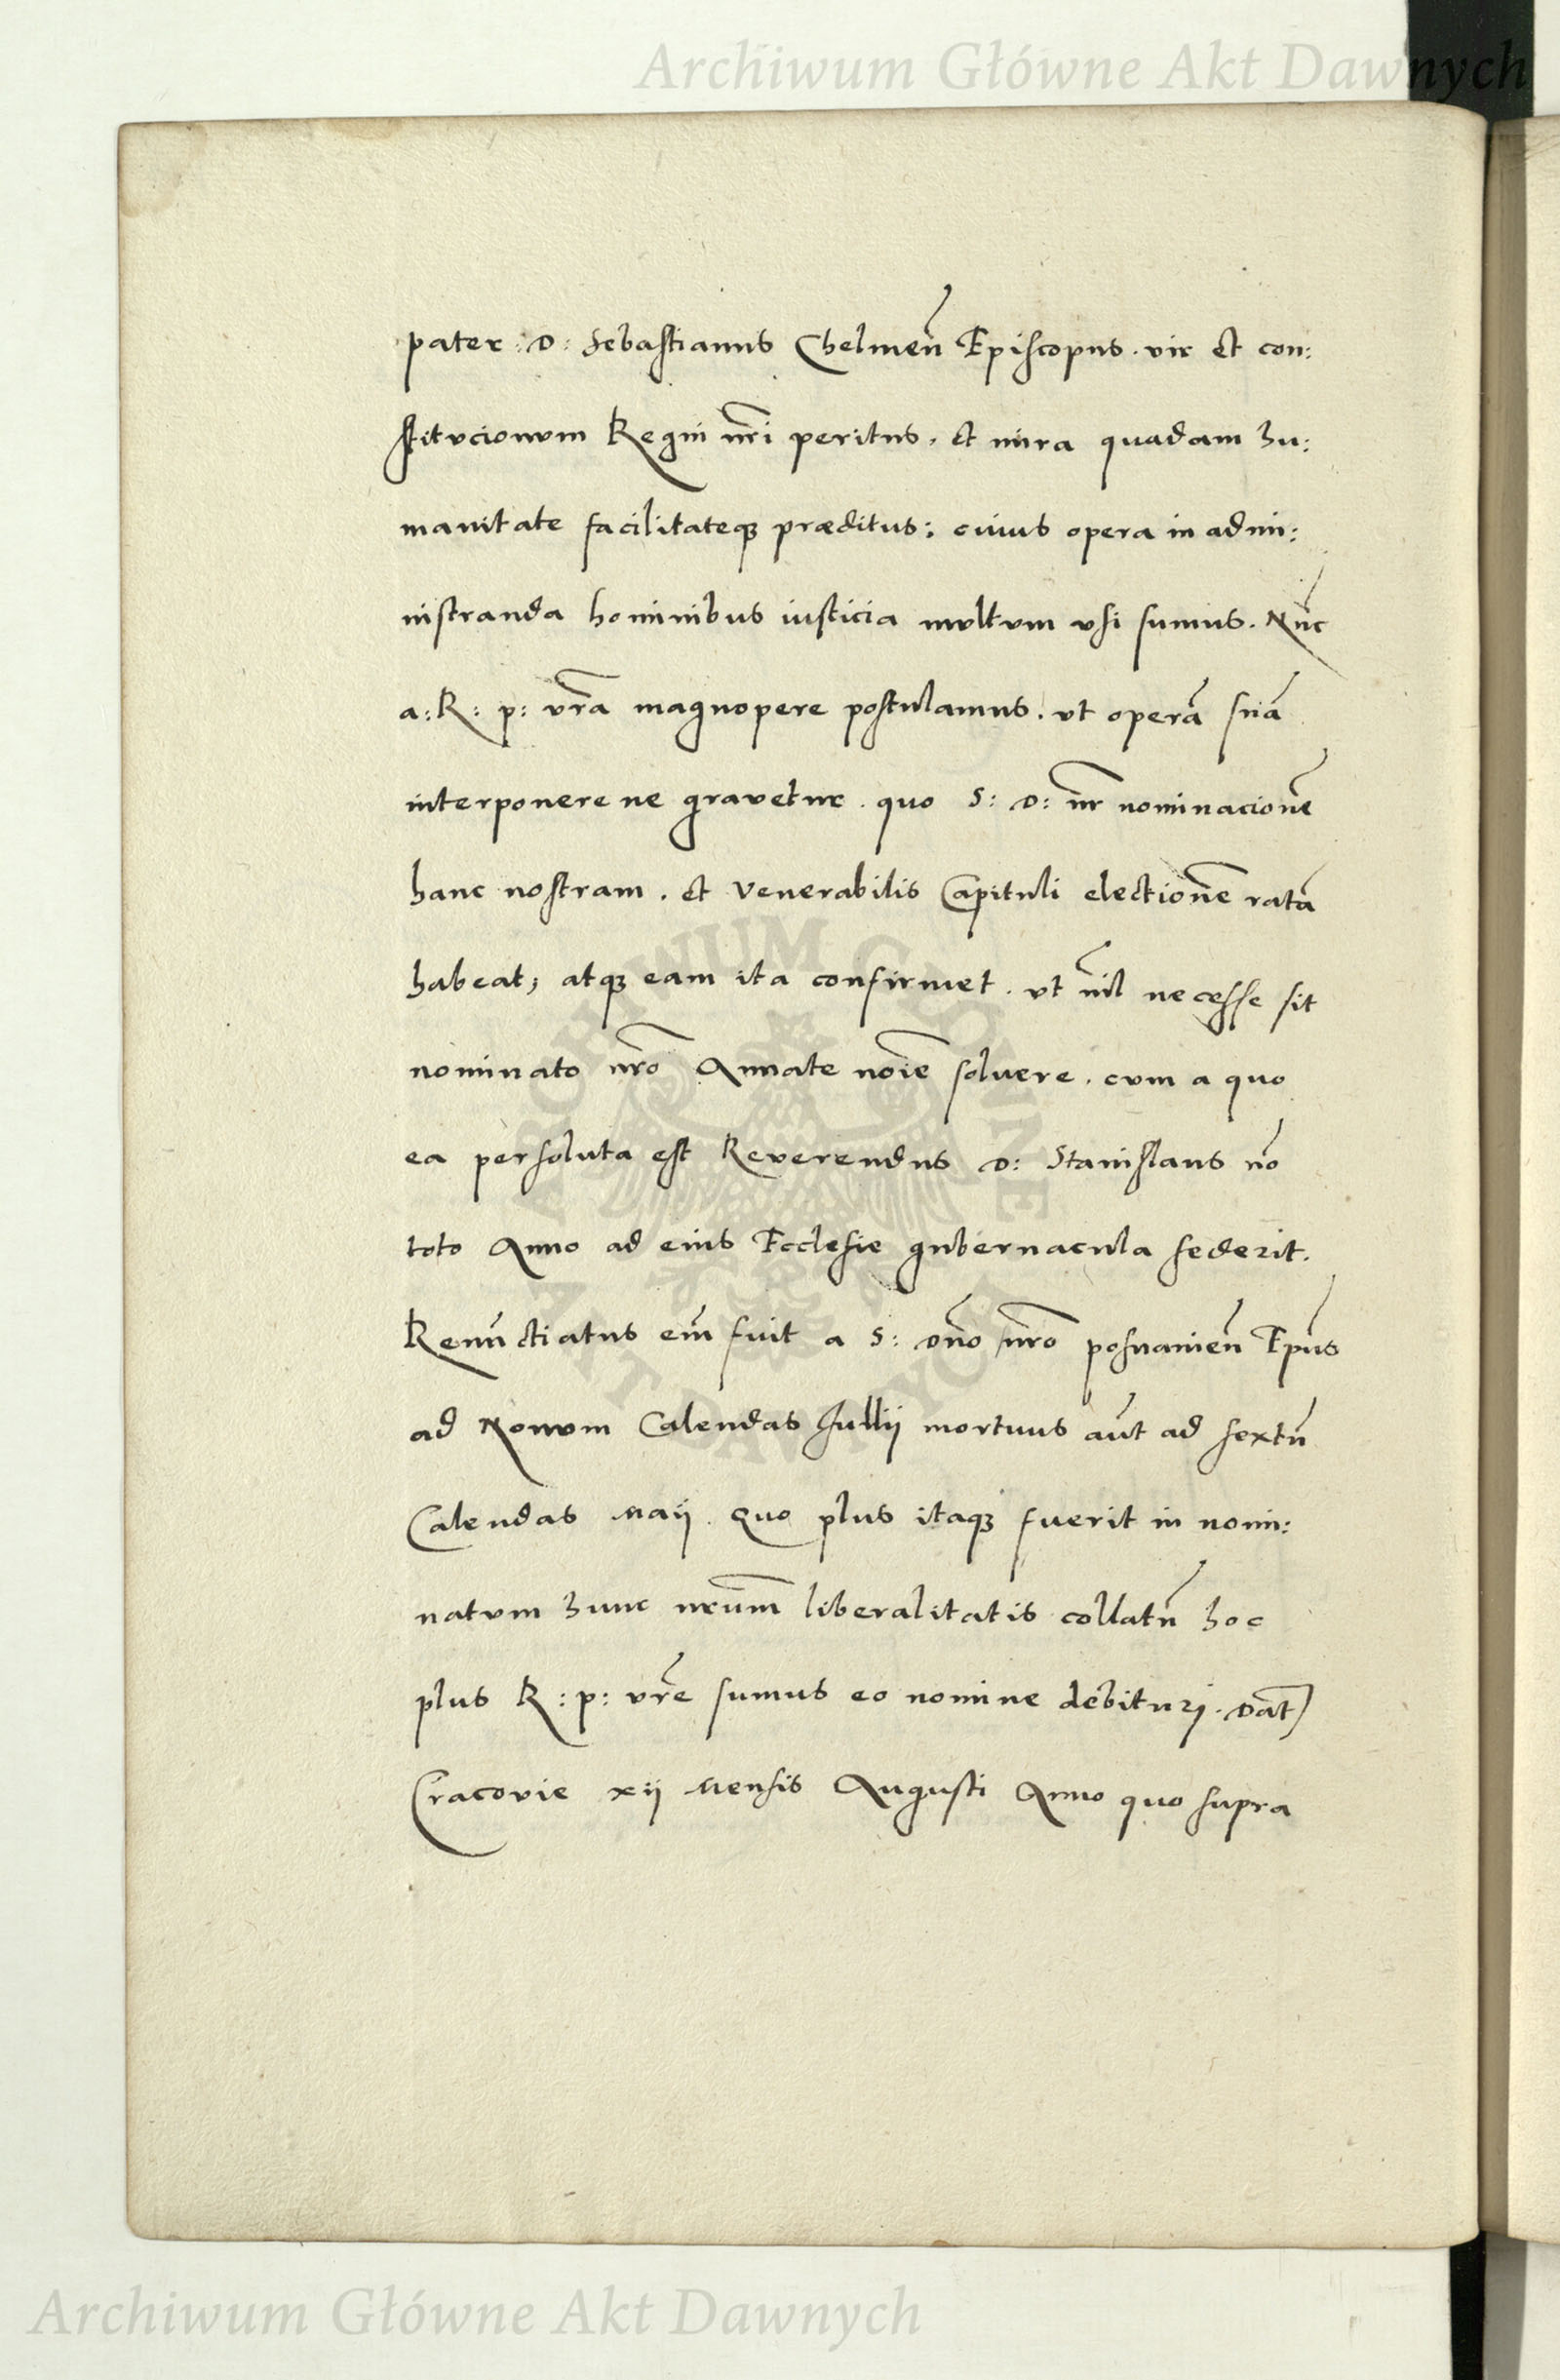 Archiwum Główne Akt Dawnych
pater: D: Sebastianus Chelmen̄ Episcopus. vir et con:
stitvcionvm Regni nr̄i peritus, et mira quadam hu:
manitate facilitateqꝫ præditus: cuius opera in admi:
nistranda hominibus iusticia mvltvm vsi sumus. Nūc
a: R: p: vr̄a magnopere postulamus. vt operā suā
interponere ne gravetur. quo S: D: nr̄ nominacionē
hanc nostram. et Venerabilis Capituli electionē ratā
habeat; atqꝫ eam ita confirmet. vt nīl necesse sit
nominato nr̄o Annate noīe solvere. cvm a quo
ea persoluta est Reverendus D: Stanislaus nō
toto Anno ad eius Ecclesie gubernacula sederit.
Renūctiatus eīm fuit a S: Dn̄o nr̄o posnanien̄ Ep̄us
ad Nonvm Calendas Jullij mortuus aūt ad sextū
Calendas Maij. Quo plus itaqꝫ fuerit in nomi:
natvm hunc nr̄um liberalitatis collatū hoc
plus R: p: vr̄e sumus eo nomine debituri. Dat̄
Cracovie xij Mensis Augusti Anno quo supra
ARCHIWUM GŁÓWNE
AKT DAWNYCH
Archiwum Główne Akt Dawnych